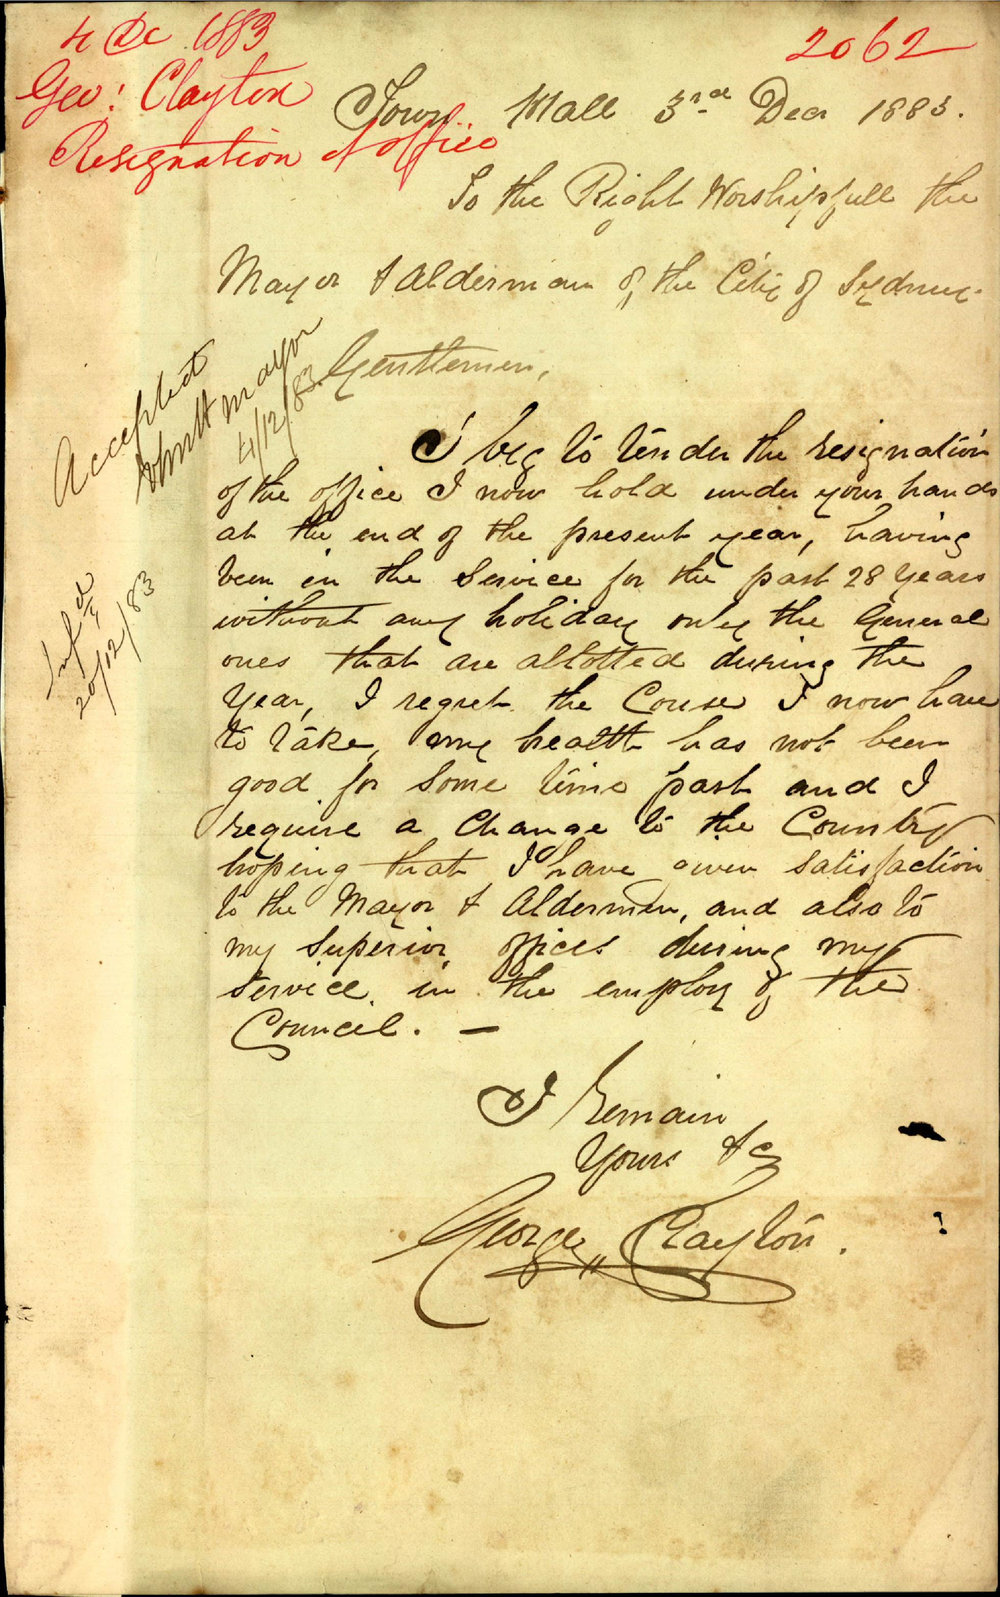 4 De 1883
2062
Geo: Clayton
Resignation of office
Town Hall 3rd Decr 1883.
To the Right Worshipfull the
Mayor & Alderman of the City of Sydney.
Gentlemen,
Accepted
Mayor
4/12/83
I beg to tender the resignation
of the office I now hold under your hands
at the end of the present year, having
been in the Service for the past 28 Years
without any holiday only the General
ones that are allotted during the
Year, I regret the Course I now have
to take, my health has not been
good for some time past and I
require a Change to the Country
hoping that I have given Satisfaction
to the Mayor & Aldermen, and also to
my Superior offices during my
Service in the employ of the
Council. —
20/12/83
I Remain
Yours &c
George Clayton.